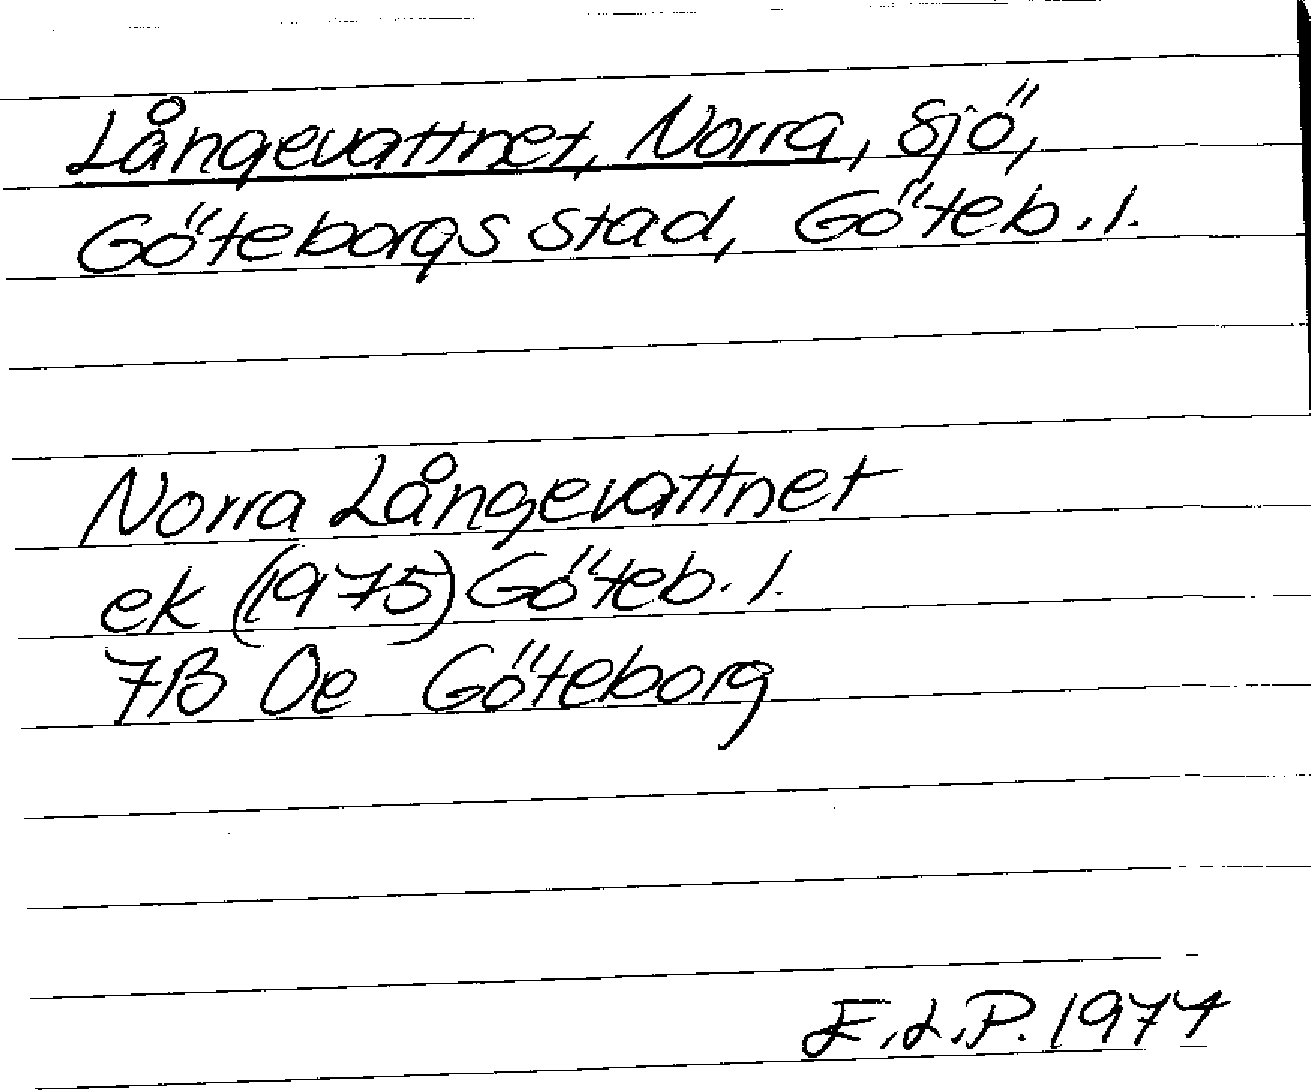 Långevattnet, Norra, sjö,
Göteborgs stad, Göteb. l.
Norra Långevattnet
ek (1975) Göteb. l.
7B 0e Göteborg
E.L.P. 1977